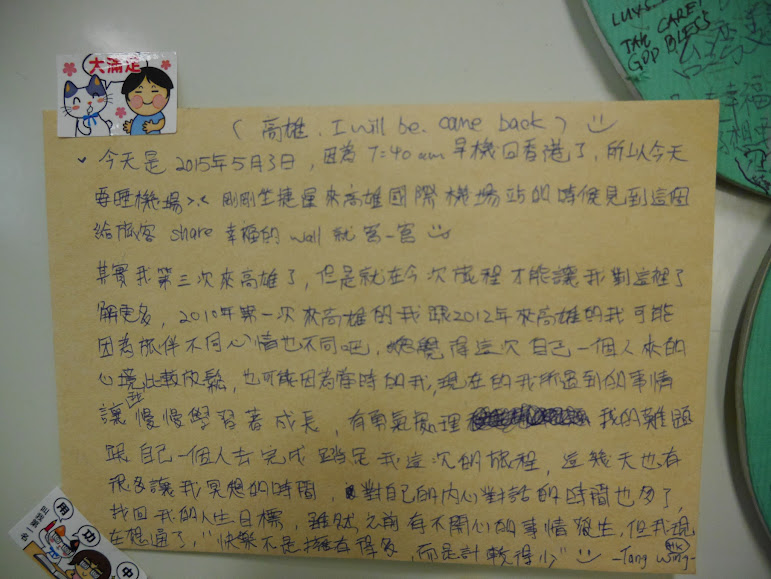 LUVS
TAKE CARE!
GOD BLESS
台灣
幸福
大滿足
(高雄. I will be. came back) ☺
今天是2015年5月3日, 因為7:40 am早機回香港了, 所以今天
要睡機場 >.< 剛剛坐捷運來高雄國際機場站的時候見到這個
給旅客 share 幸福的 wall 就寫一寫 ☺
其實我第三次來高雄了, 但是就在今次旅程才能讓我對這裡了
解更多, 2010年第一次來高雄的我跟2012年來高雄的我可能
因為旅伴不同心情也不同吧, 總覺得這次自己一個人來的
心境比較放鬆, 也可能因為當時的我, 現在的我所遇到的事情
讓我慢慢學習著成長, 有勇氣處理 我的難題
跟自己一個人去完成 我這次的旅程, 這幾天也有
很多讓我冥想的時間, 對自己的內心對話的時間也多了,
找回我的人生目標, 雖然之前有不開心的事情發生, 但我現
在想通了, "快樂不是擁有得多, 而是計較得少" ☺ -Tang Wing- (HK)